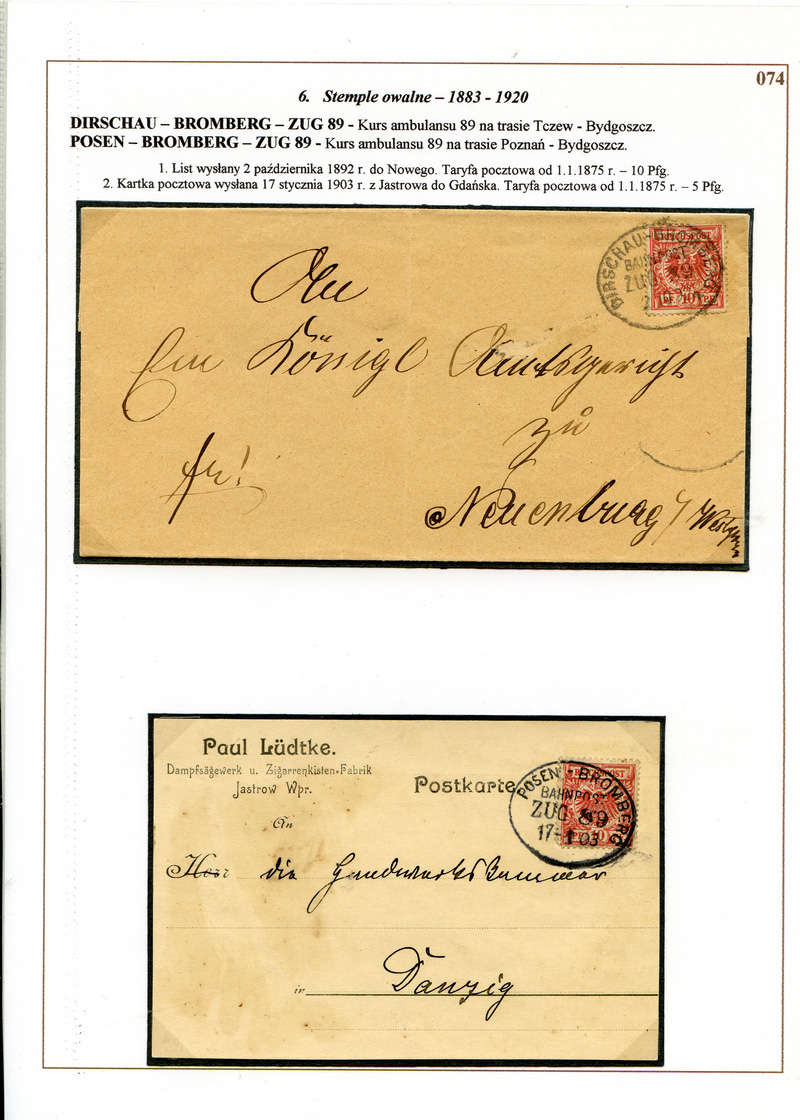 074
6. Stemple owalne – 1883 - 1920
DIRSCHAU – BROMBERG – ZUG 89 - Kurs ambulansu 89 na trasie Tczew - Bydgoszcz.
POSEN – BROMBERG – ZUG 89 - Kurs ambulansu 89 na trasie Poznań - Bydgoszcz.
1. List wysłany 2 października 1892 r. do Nowego. Taryfa pocztowa od 1.1.1875 r. – 10 Pfg.
2. Kartka pocztowa wysłana 17 stycznia 1903 r. z Jastrowa do Gdańska. Taryfa pocztowa od 1.1.1875 r. – 5 Pfg.
DIRSCHAU-BROMBERG
BAHNPOST
ZUG 89
An
Ein Königl Amtsgericht
zu
fr!
Neuenburg /
Paul Lüdtke.
Dampfsägewerk u. Zigarrenkisten-Fabrik
Jastrow Wpr.
Postkarte
POSEN - BROMBERG
BAHNPOST
ZUG 89
17-1 03
An
Herr die Handwerkskammer
in Danzig